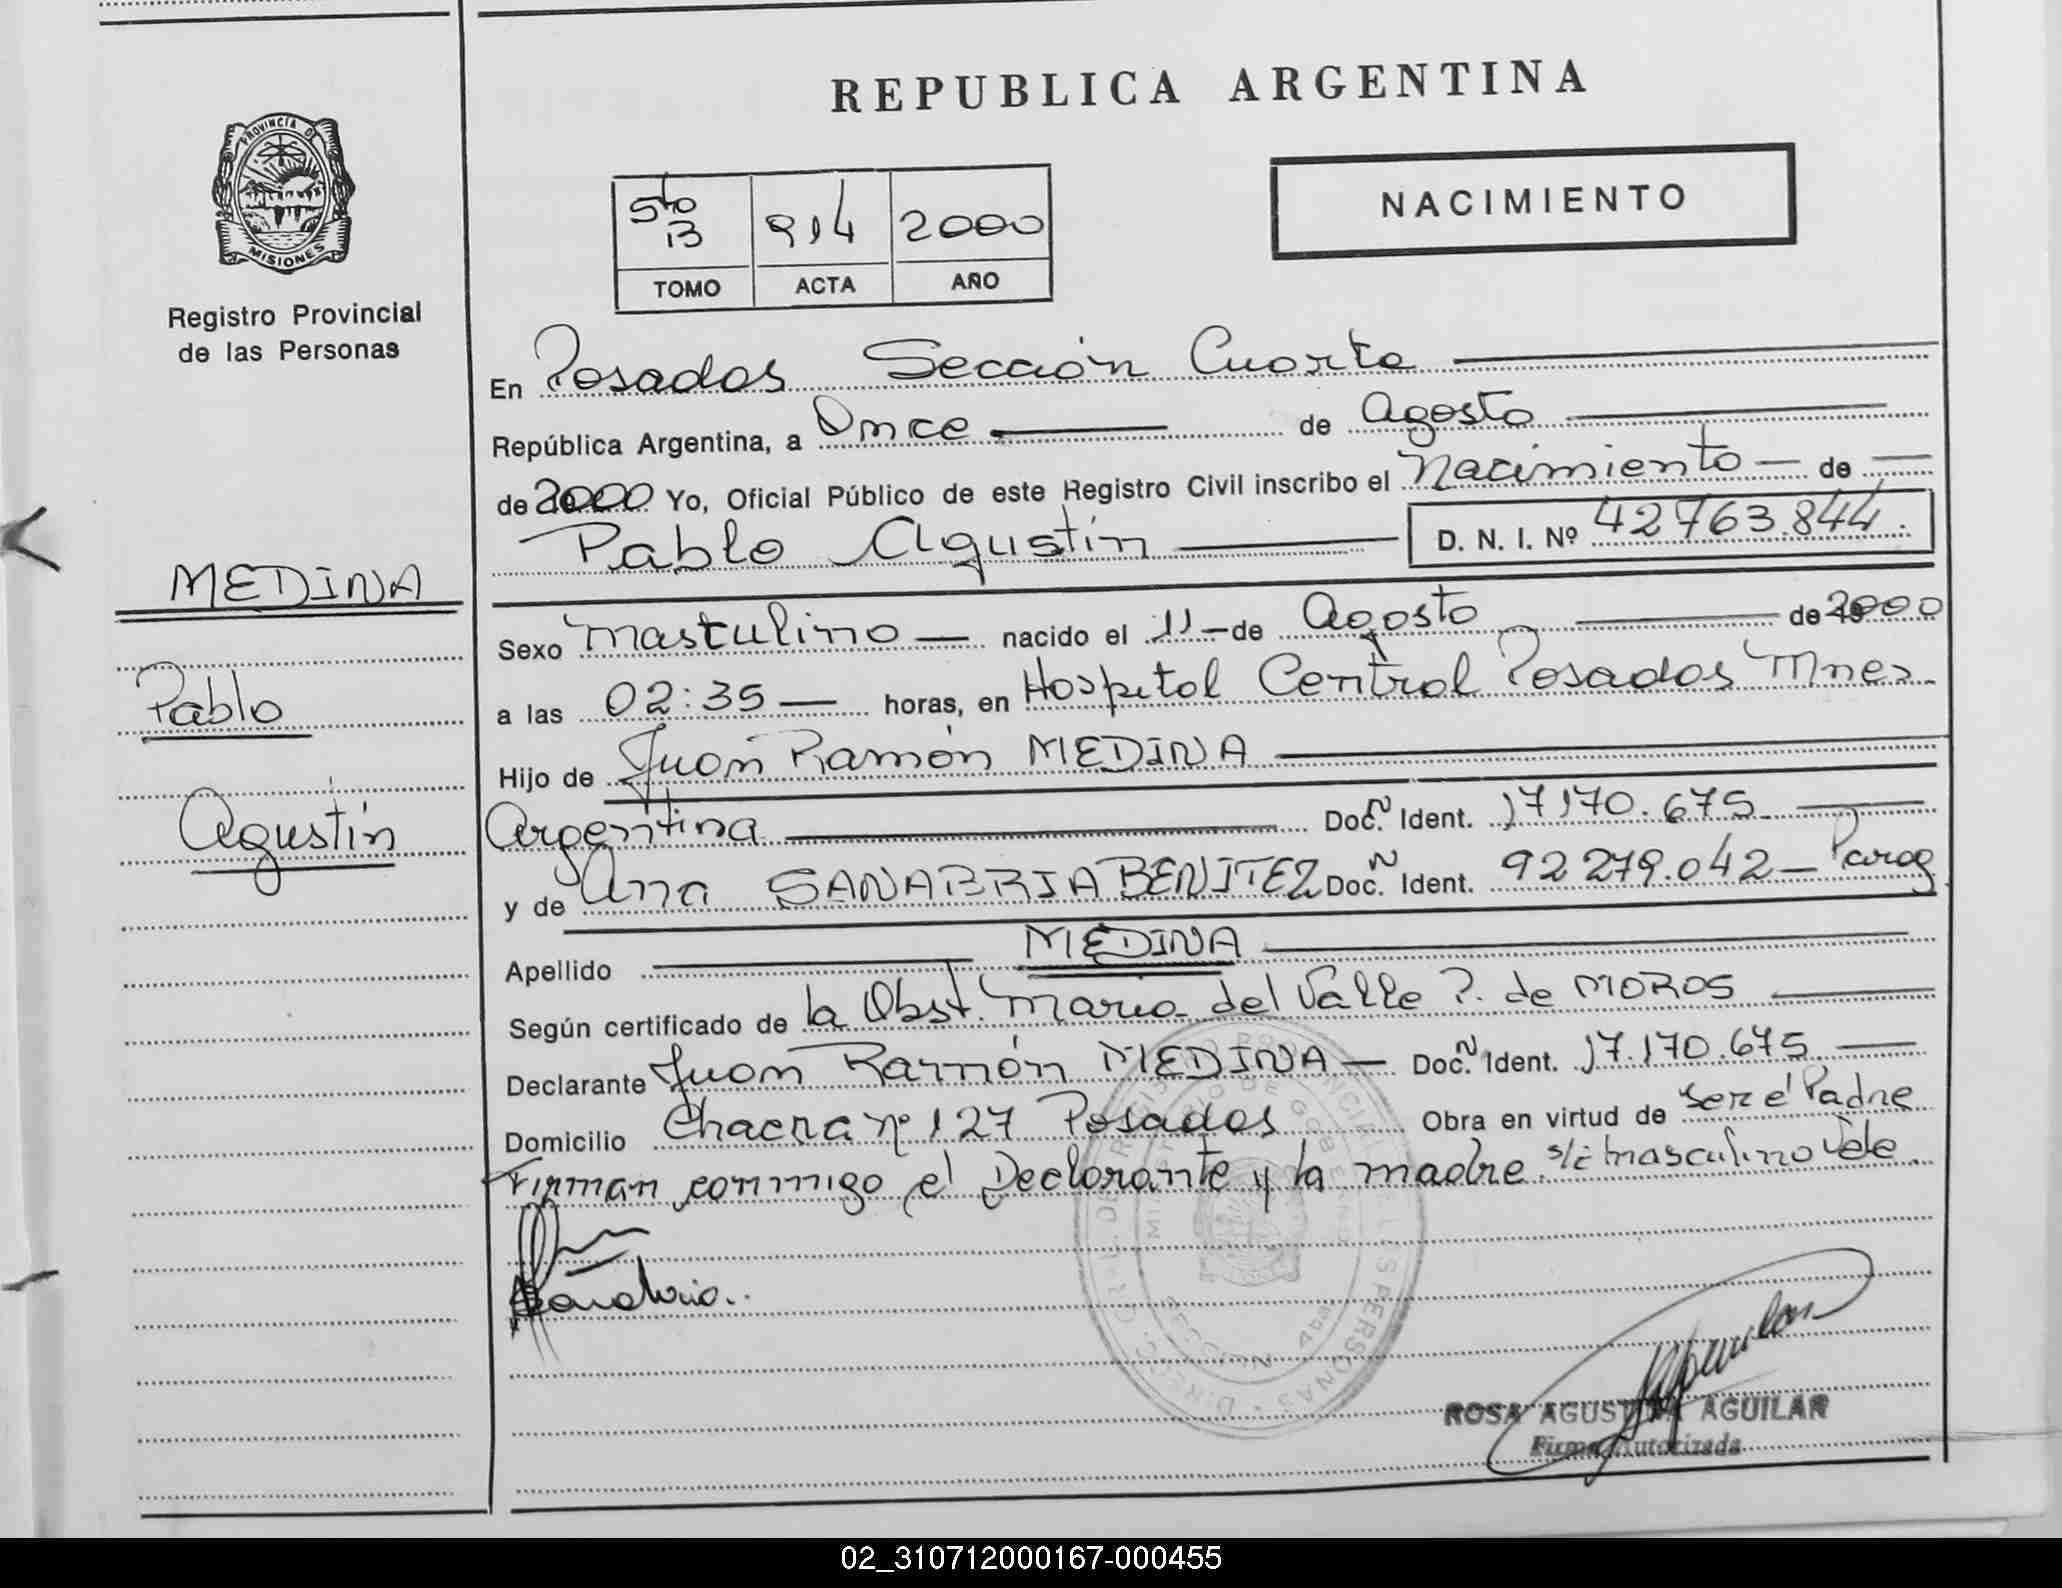 REPUBLICA ARGENTINA
PROVINCIA DE
MISIONES
Registro Provincial
de las Personas
5to 13 914 2000
TOMO ACTA AÑO
NACIMIENTO
En Posadas Sección Cuarta
República Argentina, a Once de Agosto
de 2000 Yo, Oficial Público de este Registro Civil inscribo el Nacimiento de
Pablo Agustín D. N. I. Nº 42763.844
MEDINA
Pablo
Agustín
Sexo masculino nacido el 11 de Agosto de 2000
a las 02:35 horas, en Hospital Central Posadas Mnes
Hijo de Juan Ramón MEDINA
Argentina Doc. Ident. 17170.675
y de Ana SANABRIA BENITEZ Doc. Ident. 92 279.042 Parag
Apellido MEDINA
Según certificado de la Obst. Maria del Valle P. de MOROS
Declarante Juan Ramón MEDINA Doc. Ident. 17.170.675
Domicilio Chacra nº 127 Posadas Obra en virtud de ser el Padre
Firman conmigo el Declarante y la madre. s/i masculino Vale
ROSA AGUSTINA AGUILAR
Firma Autorizada
02_310712000167-000455